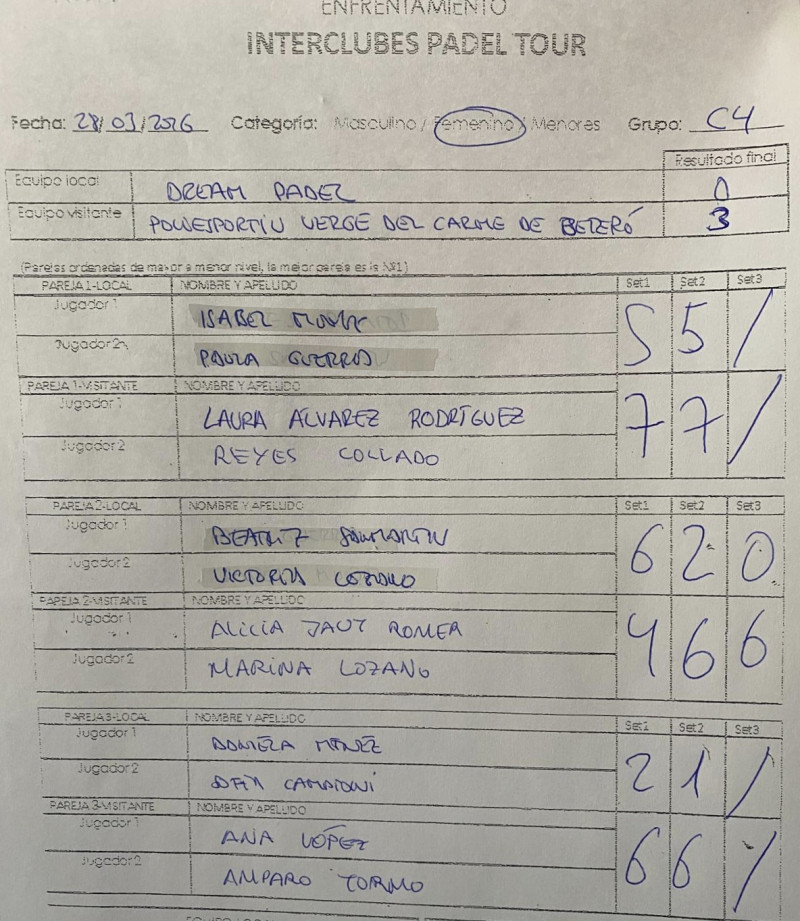 ENFRENTAMIENTO
INTERCLUBES PADEL TOUR
Fecha: 28/03/2026 Categoría: Masculino / Femenino / Menores Grupo: C4
Resultado final
Equipo local DREAM PADEL 0
Equipo visitante POLIESPORTIU VERGE DEL CARME DE BETERÓ 3
(Parejas ordenadas de mayor a menor nivel, la mejor pareja es la Nº1)
PAREJA 1-LOCAL NOMBRE Y APELLIDO Set1 Set2 Set3
Jugador 1 ISABEL 5 5 /
Jugador 2 PAULA GUERRERO
PAREJA 1-VISITANTE NOMBRE Y APELLIDO
Jugador 1 LAURA ÁLVAREZ RODRÍGUEZ 7 7 /
Jugador 2 REYES COLLADO
PAREJA 2-LOCAL NOMBRE Y APELLIDO Set1 Set2 Set3
Jugador 1 BEATRIZ SANMARTIN 6 2 0
Jugador 2 VICTORIA
PAREJA 2-VISITANTE NOMBRE Y APELLIDO
Jugador 1 ALICIA JAUT ROMER 4 6 6
Jugador 2 MARINA LOZANO
PAREJA 3-LOCAL NOMBRE Y APELLIDO Set1 Set2 Set3
Jugador 1 DANIELA 2 1 /
Jugador 2
PAREJA 3-VISITANTE NOMBRE Y APELLIDO
Jugador 1 ANA LÓPEZ 6 6 /
Jugador 2 AMPARO TORMO